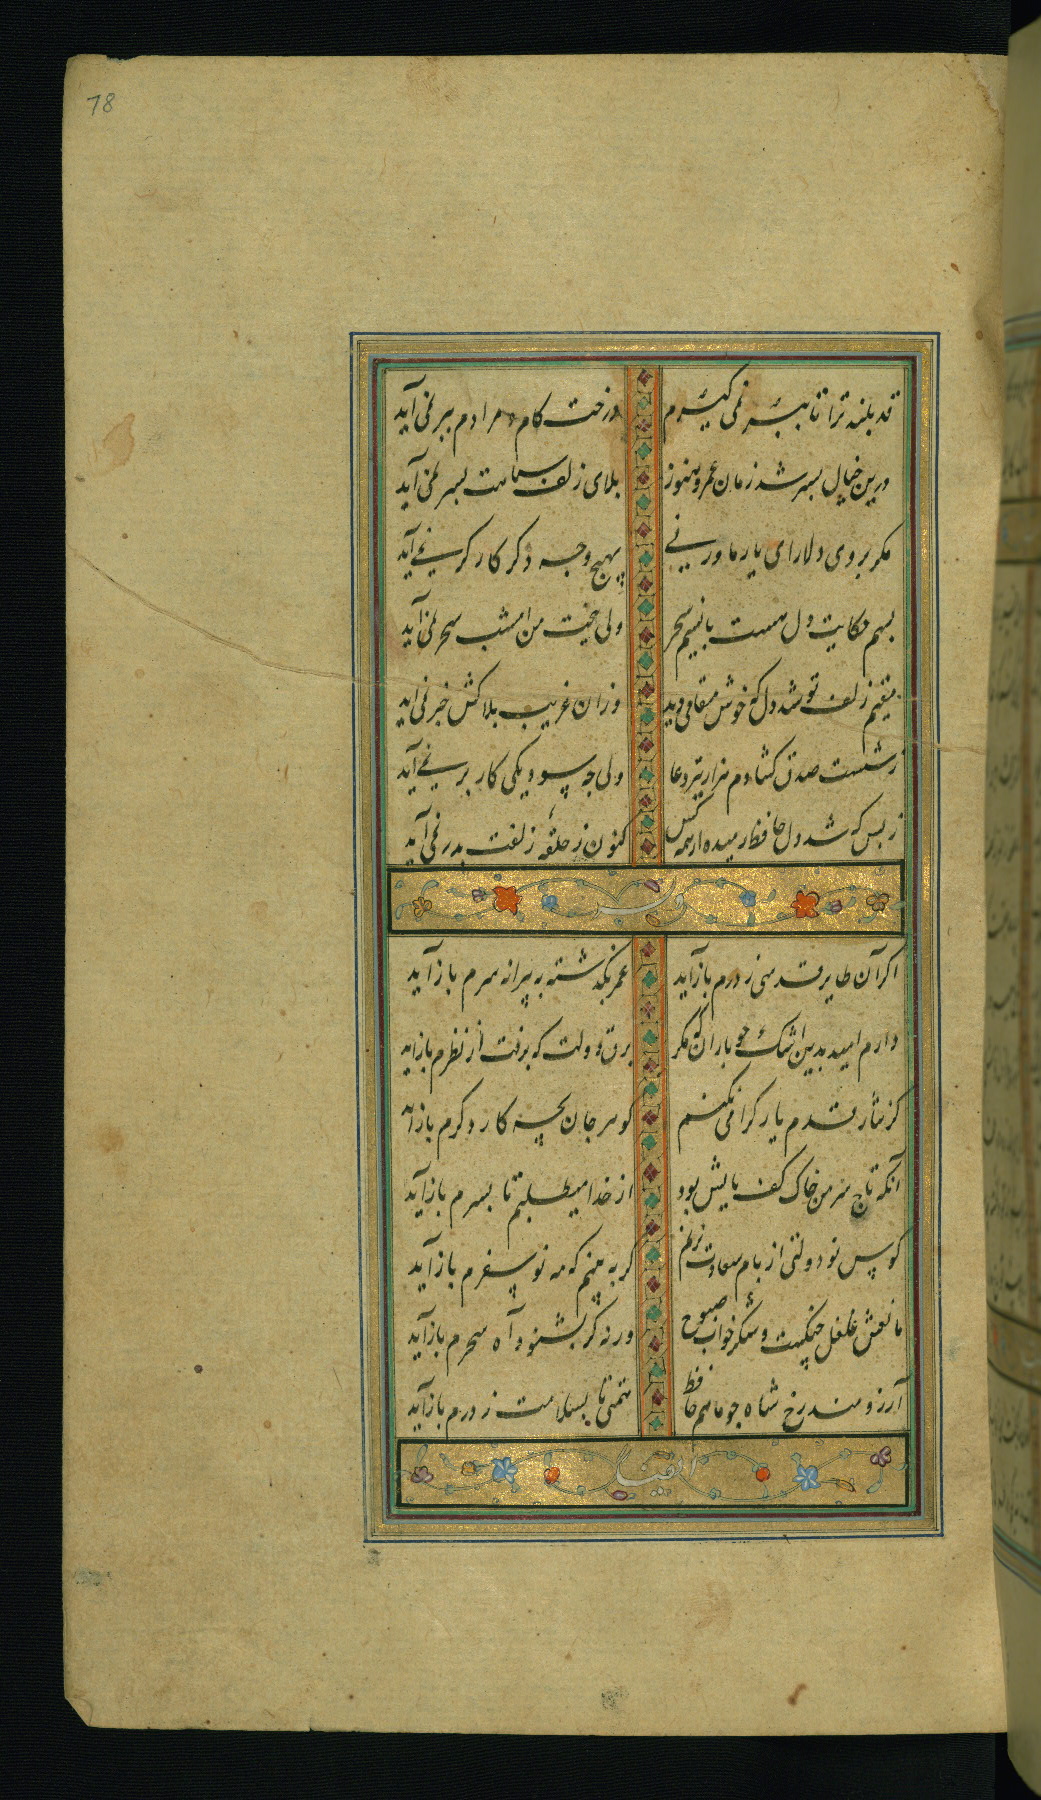 78
قد بلند ترا تا ببر نمی گیرم درخت کام و مرادم ببر نمی آید
درین خیال بسر شد زمان عمر و هنوز بلای زلف سیاهت بسر نمی آید
مکر بروی دلارای یار ما ورنی بهیچ وجه دکر کار کر نمی آید
بسم حکایت دل هست با نسیم سحر ولی بخت من امشب سحر نمی آید
مقیم زلف تو شد دل که خوش مقامی دید وزان غریب بلاکش خبر نمی آید
ز شست صدق کشادم هزار تیر دعا ولی چه سود یکی کار بر نمی آید
ز بس که شد دل حافظ رمیده از همه کس کنون ز حلقه زلفت بدر نمی آید
وله
اکر آن طایر قدسی ز درم باز آید عمر بکذشته به پیرانه سرم باز آید
دارم امید بدین اشک چو باران که مکر برق دولت که برفت از نظرم باز اید
کر نثار قدم یار کرامی نکنم کوهر جان بچه کار دکرم باز اید
آنکه تاج سر من خاک کف پایش بود از خدا میطلبم تا بسرم باز آید
کوس نو دولتی از بام سعادت بزنم کر به بینم که مه نو سفرم باز آید
مانعش غلغل چنکست و شکر خواب صبوح ورنه کر بشنود آه سحرم باز آید
آرزومند رخ شاه چو ماهم حافظ همتی تا بسلامت ز درم باز آید
ایضا